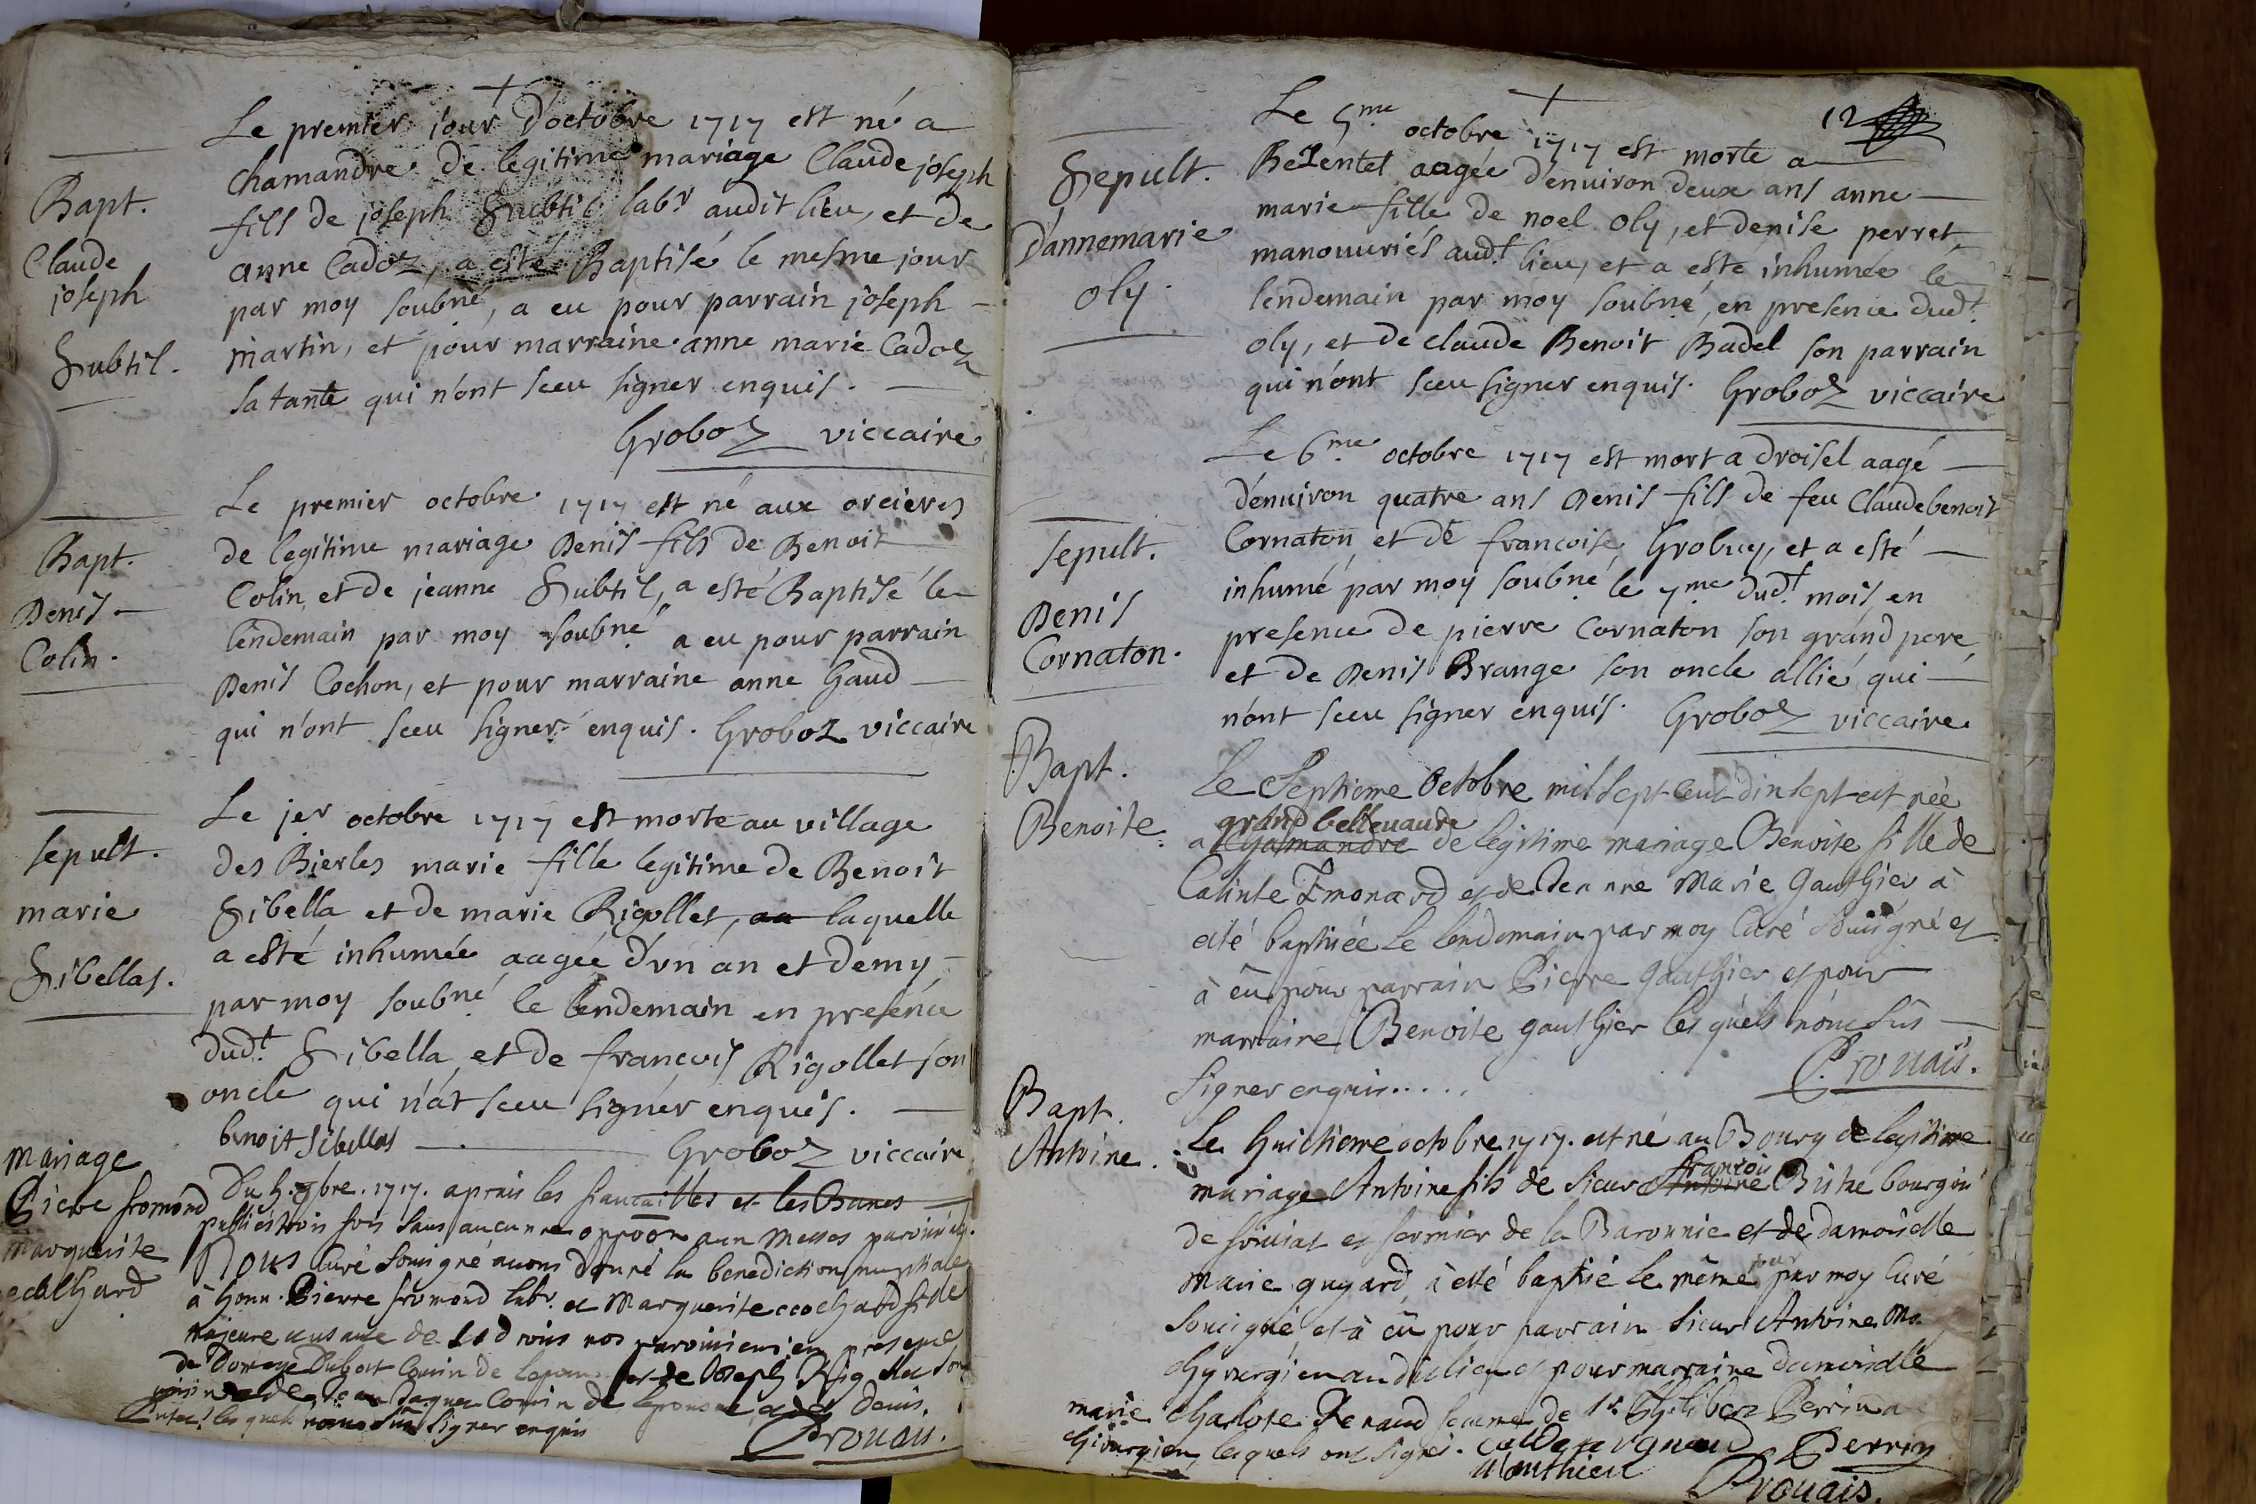 Bapt.
Claude
joseph
Subtil.
Le premier jour d'octobre 1717 est né a
chamandre de legitime mariage Claude joseph
fils de joseph Subtil labr audit lieu, et de
anne Cadoz, a esté Baptisé le mesme jour
par moy soubné, a eu pour parrain joseph
martin, et pour marraine anne marie Cadoz
sa tante qui n'ont sceu signer enquis.
Groboz viccaire
Bapt.
Denis
Colin.
Le premier octobre 1717 est né aux orcieres
de legitime mariage Denis fils de Benoit
Colin, et de jeanne Subtil, a esté Baptisé le
lendemain par moy soubné a eu pour parrain
Denis Cochon, et pour marraine anne Gaud
qui n'ont sceu signer enquis. Groboz viccaire
sepult.
marie
Sibellas.
Le jer octobre 1717 est morte au village
des Bierles marie fille legitime de Benoit
Sibella et de marie Rigollet, laquelle
a esté inhumée aagée d'vn an et demy
par moy soubné le lendemain en presence
dudt Sibella, et de francois Rigollet son
oncle qui n'at sceu signer enquis.
benoit sibellas Groboz viccaire
Mariage
Pierre fromond
Marguerite
Du 5. 8bre. 1717. aprais les fiancailles et les Banes
publiés trois fois sans aucunne aux Messes
Nous Curé sousigné avons donné la benediction nuptiale
à honn. Pierre fromond labr. et Marguerite fille
majeure nos paroissiens en presence
de Dubost Cousin de et de Joseph son
et de Cousin de Denis.
les quels signer enquis
Prouais.
12
Sepult.
D'annemarie
Oly.
Le 5me octobre 1717 est morte a
Bezentet aagée d'enuiron deux ans anne
marie fille de noel oly, et denise perret
manouuriés audt lieu, et a este inhumée le
lendemain par moy soubné, en presence dudt
oly, et de claude Benoit Badel son parrain
qui n'ont sceu signer enquis. Groboz viccaire
sepult.
Denis
Cornaton.
Le 6me octobre 1717 est mort a Droisel aagé
d'enuiron quatre ans Denis fils de feu Claudebenoit
Cornaton, et de francoise Grobuy, et a esté
inhumé par moy soubné le 7me dudt mois, en
presence de pierre Cornaton son grand pere
et de Denis Brange son oncle allié qui
n'ont sceu signer enquis. Groboz viccaire
Bapt.
Benoite.
Le Septieme Octobre mil sept cent dix sept est née
grand bellevaure
a Chamandre de legitime mariage Benoite fille de
Emonard et de Jeanne Marie Gauthier à
esté baptisée le lendemain par moy Curé sousigné et
à eu pour parrain Pierre Gauthier et pour
marraine Benoite gauthier les quels n'ont sus
signer enquis.....
Prouais.
Bapt.
Antoine.
Le huictieme octobre 1717. est né au Bourg de legitime
francois
mariage Antoine fils de sieur Antoine
de et fermier de la Baronnie et de damoiselle
Marie guyard, à esté baptisé le même jour par moy Curé
sousigné et à eu pour parrain sieur Antoine
chyrurgien audict lieu et pour marraine damoiselle
marie Charlote Renaud femme de Sr. Perrin
chirurgien, lesquels ont signés. Perrin
Mauthieu
Prouais.